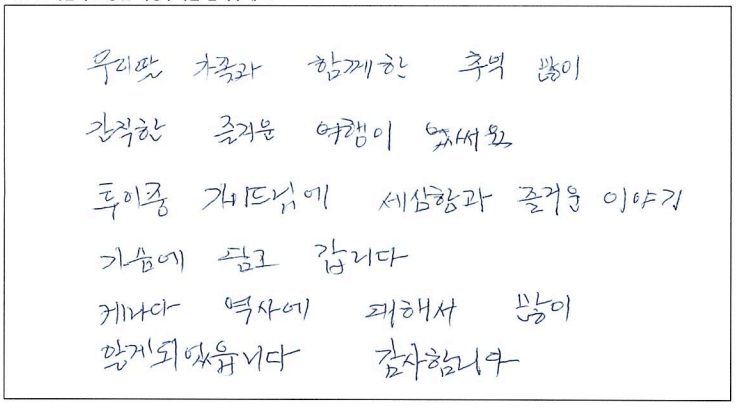 가족과 함께한 추억 많이
간직한 즐거운 여행이 였사서요
투이중 가이드님에 세삼함과 즐거운 이야기
가슴에 담고 갑니다
케나다 역사에 대해서 많이
알게되었읍니다 감사함니다